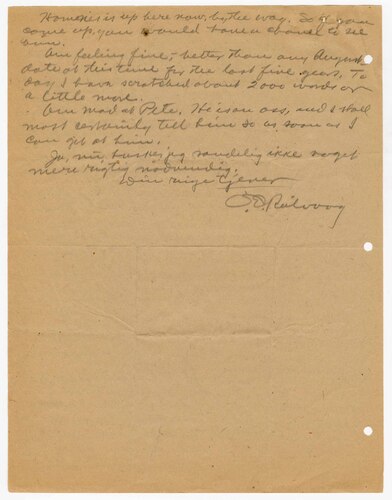 is up here now, by the way. So if you
come up, you would have a chance to see
him.
Am feeling fine, – better than any August
date at this time for the last five years. To
day I have scratched about 2000 words or
a little more.
Am mad at Pete. He is an ass, and I shall
most certainly tell him so as soon as I
can get at him.
Ja, ikke noget
mere
Din